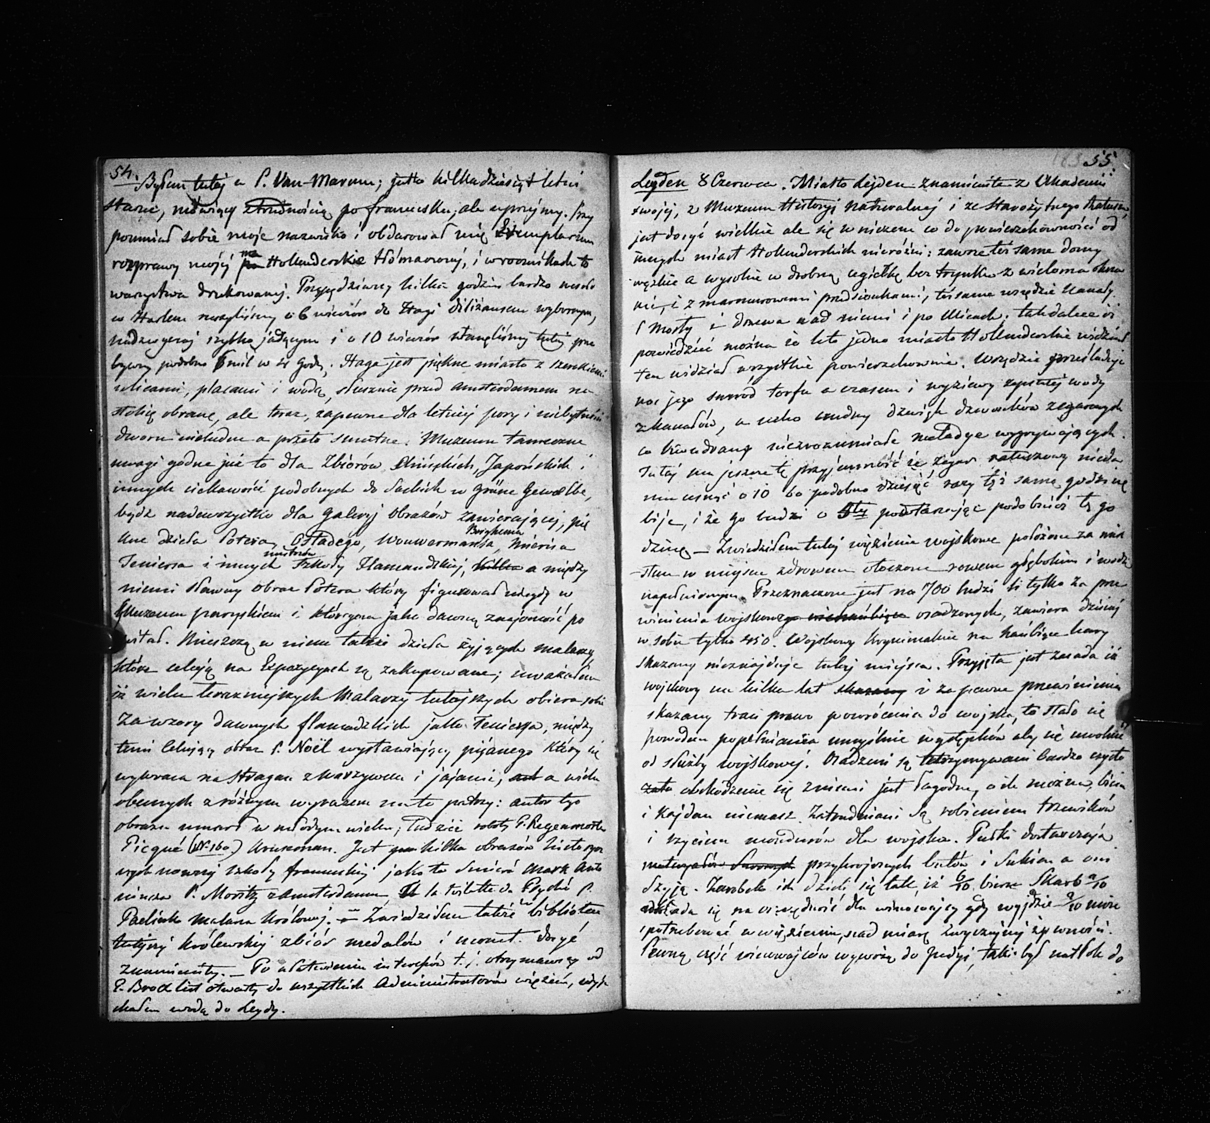 54.
Byłem tutaj u P. Van-Marum; jestto kilkadziesiąt letni
starzec, mówiący z trudnością po francusku, ale uprzejmy. Przy
pomniał sobie moje nazwisko i obdarował mię Exemplarzem
rozprawy mojéj na Hollenderskie tłómaczonéj, i w rocznikach to
warzystwa drukowanéj. Przepędziwszy kilka godzin bardzo mile
w Harlem ruszyliśmy o 6 wieczór do Hagi diliżansem wybornym,
nadzwyczaj szybko jadącym i o 10 wieczór stanęliśmy tutaj prze
bywszy podobno 6 mil w 4 godz. Haga jest piękne miasto z szerokiemi
ulicami, placami i wodą, słusznie przed Amsterdamem na
stolicę obrane, ale teraz, zapewne dla letniéj pory i niebytności
dworu nieludne a przeto smutne. Muzeum tameczne
uwagi godne już to dla Zbiorów Chińskich, Japońskich i
innych ciekawość podobnych do Saskich w Grüne Gewölbe,
bądź nadewszystko dla galeryi obrazów zawierającéj, pię
kne dzieła Potera, Ostadego, Wouwermansa, Berghema, Mierisa
Teniersa i innych mistrzów szkoły Flamandzkiéj; a między
niemi sławny obraz Potera który figurował niegdy w
Muzeum paryskiem i któregom jako dawną znajomość po
witał. Mieszczą w niem także dzieła żyjących malarzy
które celują na Expozycyach są zakupowane; uważałem
iż wielu teraźniejszych Malarzy tutejszych obiera sobie
za wzory dawnych flamandzkich jakto Teniersa, między
temi celujący obraz P. Noël wystawiający pijanego który się
wywraca na stragan z warzywem i jajami; a wielu
obecnych z różnym wyrazem na to patrzy: autor tego
obrazu umarł w młodym wieku; Tudzież roboty P. Regemorter
Picqué (N° 160) Kruseman. Jest kilka obrazów history
cznych nowszéj szkoły francuskiéj jako to śmierć Mark Anto
niusza P. Moritz z Amsterdamu, la toilette de Psyché P.
Paelinck malarza Królowéj. — Zwiedziłem także bibliotekę
tutejszą królewską zbiór medalów i monet dosyć
znamienity. — Po ułatwieniu interesów t. j. otrzymawszy od
P. Brock list otwarty do wszystkich Administratorów więzień, wyje
chałem wodą do Leydy.
55.
Lejden 8 Czerwca. Miasto Lejden znamienite z Akademii
swojéj, z Muzeum Historyi Naturalnéj i ze starożytnego Ratusza
jest dosyć wielkie ale się w niczem co do powierzchowności od
innych miast Hollenderskich nieróżni; zawsze też same domy
wązkie a wysokie w drobną cegiełkę bez tynku z wieloma okna
mi, i z marmurowemi przedsionkami, też same wszędzie kanały
i mosty i drzewa nad niemi i po ulicach; tak dalece iż
powiedzieć można że kto jedno miasto Hollenderskie widział
ten widział wszystkie powierzchownie. Wszędzie prześladuje
nos jego smród torfu a czasem i wyziewy zepsutéj wody
z kanałów, a ucho nudny dźwięk dzwonków zegarowych
co kwadrans niezrozumiałe melodye wygrywających.
Tutaj ma jeszcze tę przyjemność że zegar ratuszowy nieda
mu usnąć o 10 bo podobno dziesięć razy tęż samę godzinę
bije, i że go budzi o 5téj powtarzając podobnież tę go
dzinę. — Zwiedziłem tutaj więzienie wojskowe położone za mia
stem w miejscu zdrowem otoczone rowem głębokim i wodą
napełnionym. Przeznaczone jest na 700 ludzi li tylko za prze
winienia wojskowego osadzonych, zawiera dzisiaj
w sobie tylko 450. Wojskowy kryminalnie na hańbiące kary
skazany nieznajduje tutaj miejsca. Przyjęta jest zasada iż
wojskowy na kilka lat i za pewne przewinienia
skazany traci prawo powrócenia do wojska, to stało się
powodem popełniania umyślnie występków aby się uwolnić
od służby wojskowéj. Osadzeni są utrzymywani bardzo czysto
obchodzenie się z niemi jest łagodne, o ile można, bicia
i kajdan niemasz. Zatrudniani są robieniem trzewików
i szyciem mundurów dla wojska. Pułki dostarczają
przykrojonych butów i Sukien a oni
szyją. Zarobek ich dzieli się tak, iż 6/10 bierze Skarb 2/10
składa się na oszczędność dla winowajcy gdy wyjdzie 2/10 może
spotrzebować w więzieniu, nad miarę zwyczajnéj żywności.
Pewną część winowajców wywożą do Indyi, taki był natłok do